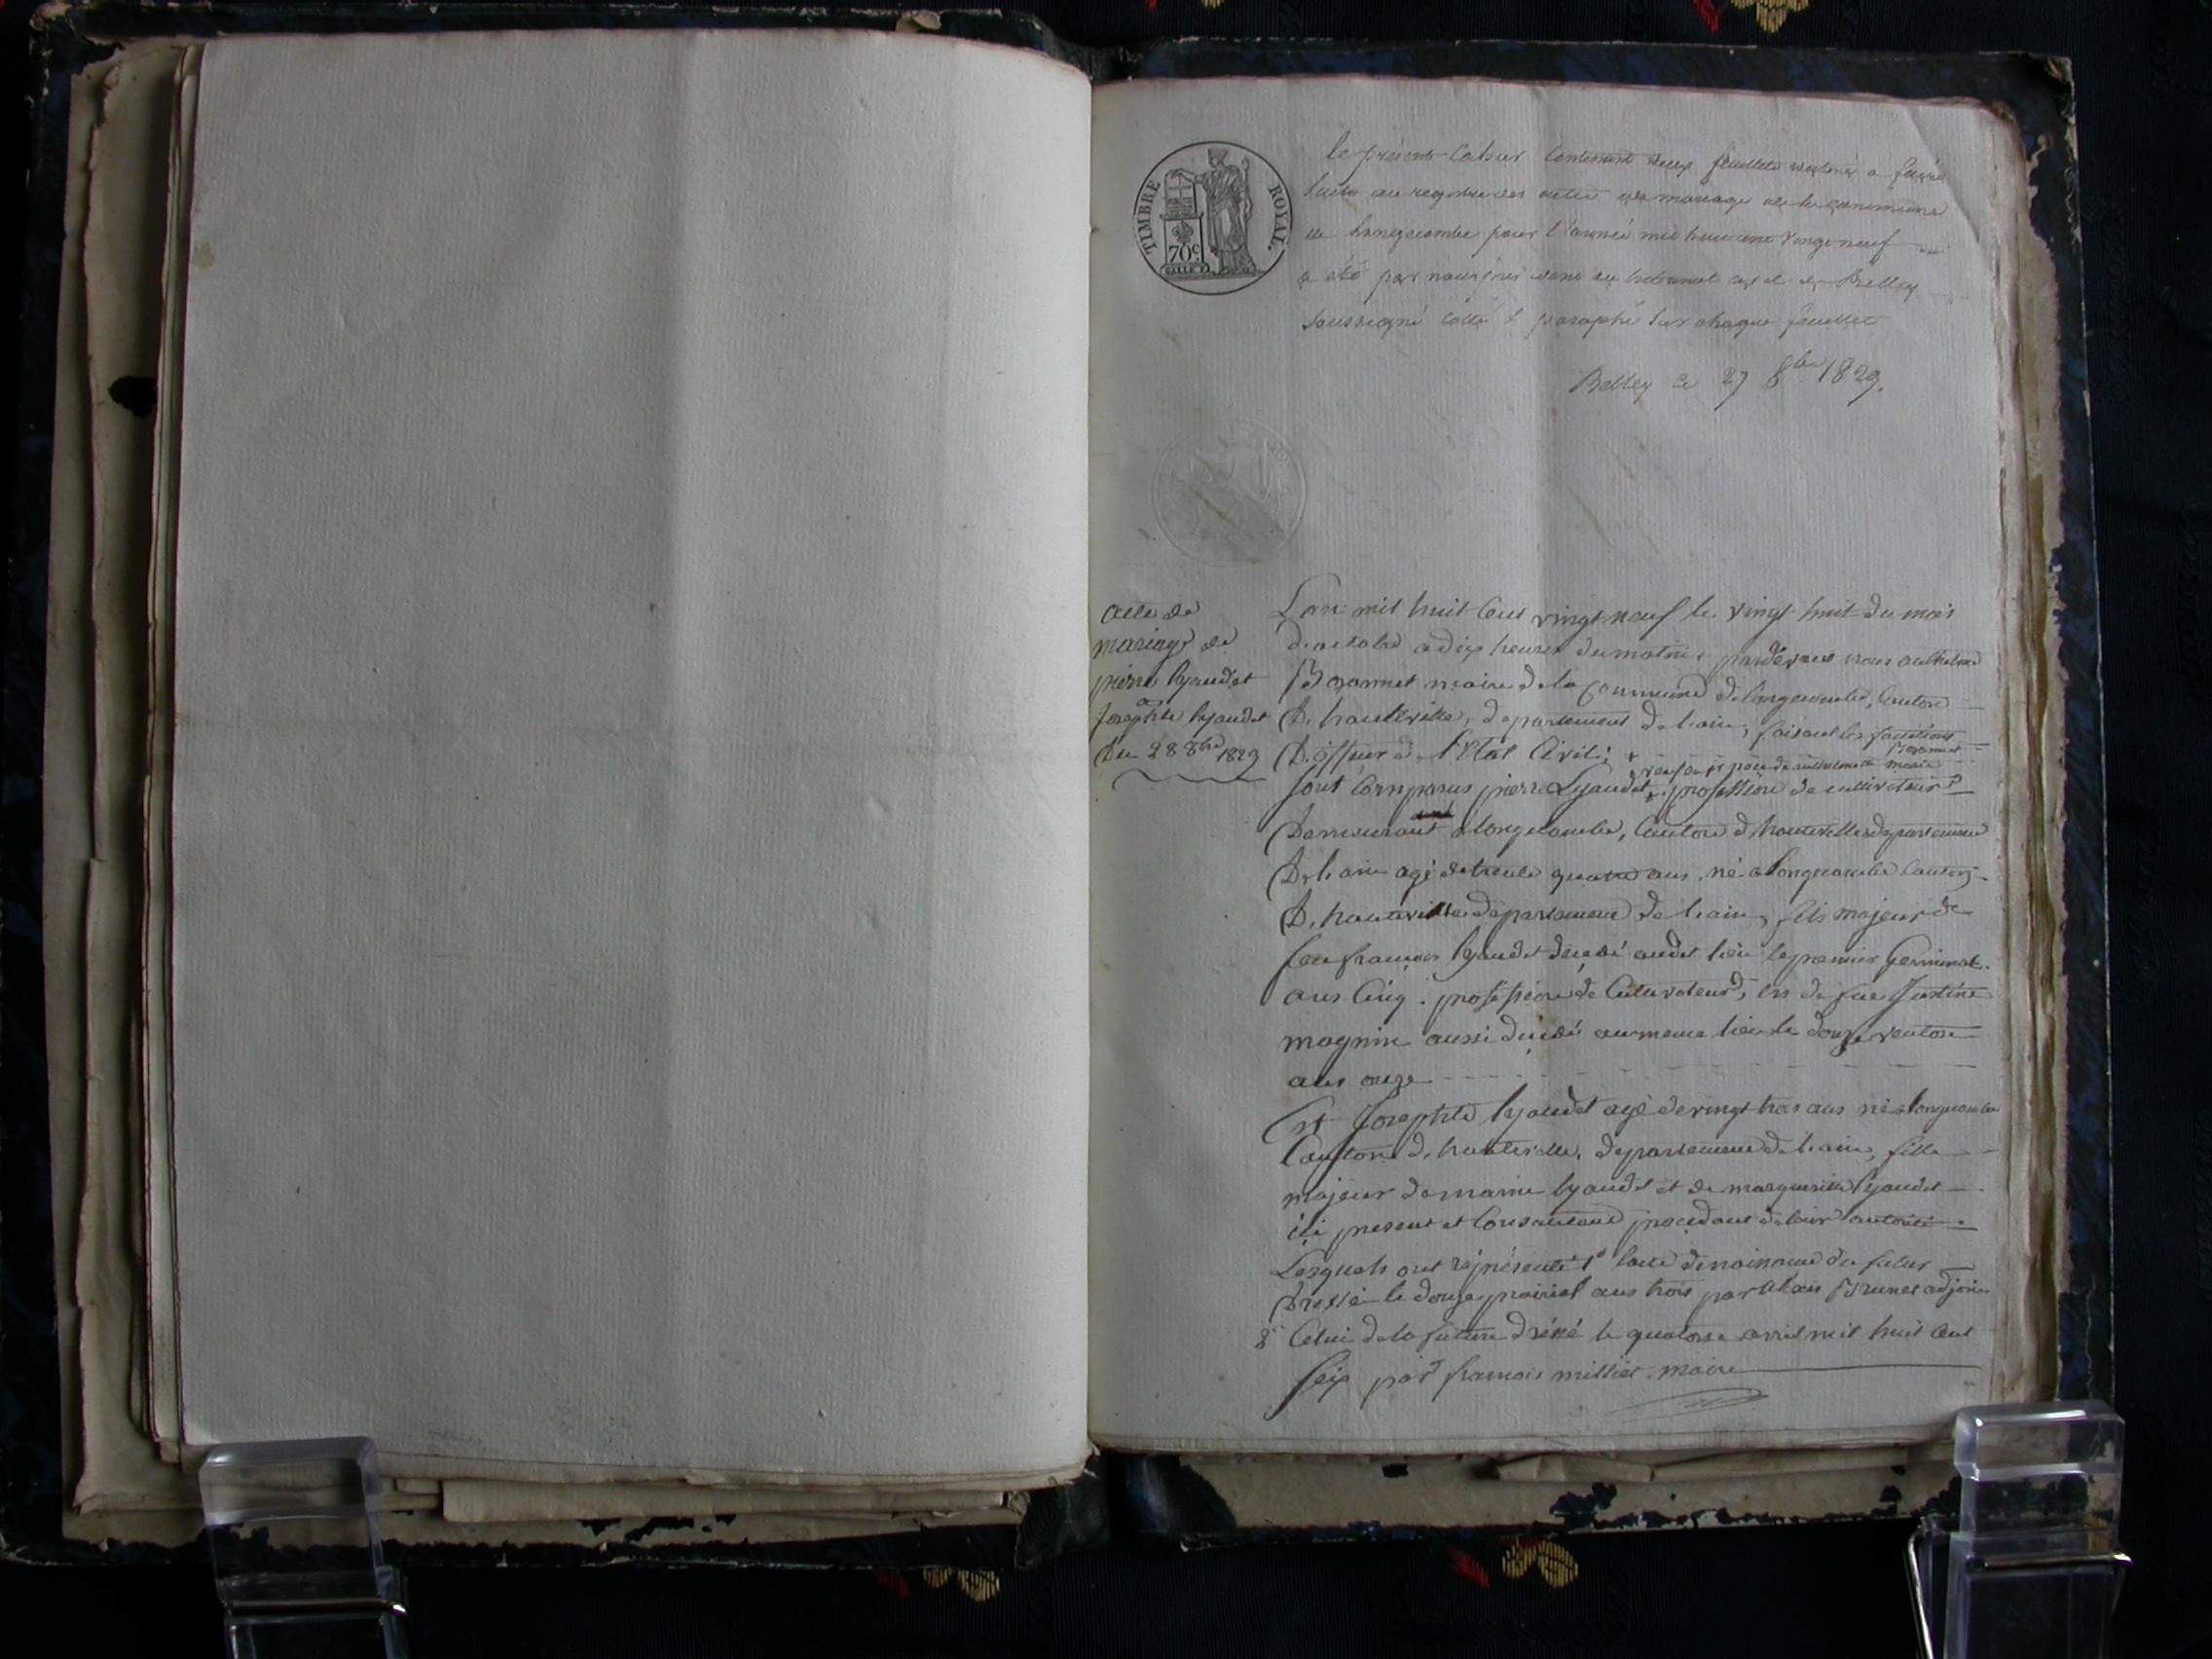 TIMBRE ROYAL.
70c
le présent cahier contenant deux feuillets destiné a faire
suite au registre des actes de mariage de la commune
de Longecombe pour l'année mil huit cent vingt neuf
a été par nous du tribunal civil de Belley
soussigné cotté & paraphé sur chaque feuillet
Belley ce 27 8bre 1829.
acte de
mariage de
pierre lyaudet
a
Josephte lyaudet
Du 28 8bre 1829
L'an mil huit Cent vingt neuf le vingt huit du mois
d'octobre a dix heures du matin, pardevant nous anthelme
Bozonnet maire de la Commune de longecombe, Canton
De hauteville, département de l'ain, faisant les fonctions
D'officier de l'Etat Civil;
Sont Comparus pierre Lyaudet profession de cultivateur
Demeurant a longecombe, Canton d'hauteville departement
De l'ain agé de trente quatre ans, né a longecombe Canton
D. hauteville departement de l'ain, fils majeur de
feu françois lyaudet décédé audit lieu le premier Germinal
ans Cinq. profession de Cultivateur, et de feue Justine
magnin aussi décédé au meme lieu le douze ventose
ans onze
Et Josephte lyaudet agé de vingt trois ans né a longecombe
Canton d. hauteville, departement de l'ain, fille
majeur de marin lyaudet et de marguerite lyaudet
ici present et Consentant procedant de leur autorité.
Lesquels ont représenté 1° l'acte de naissance du futur
Dressé le douze prairial ans trois par Brunet adjoint
2° Celui de la future dréssé le quatorze avril mil huit Cent
Six par françois milliet maire